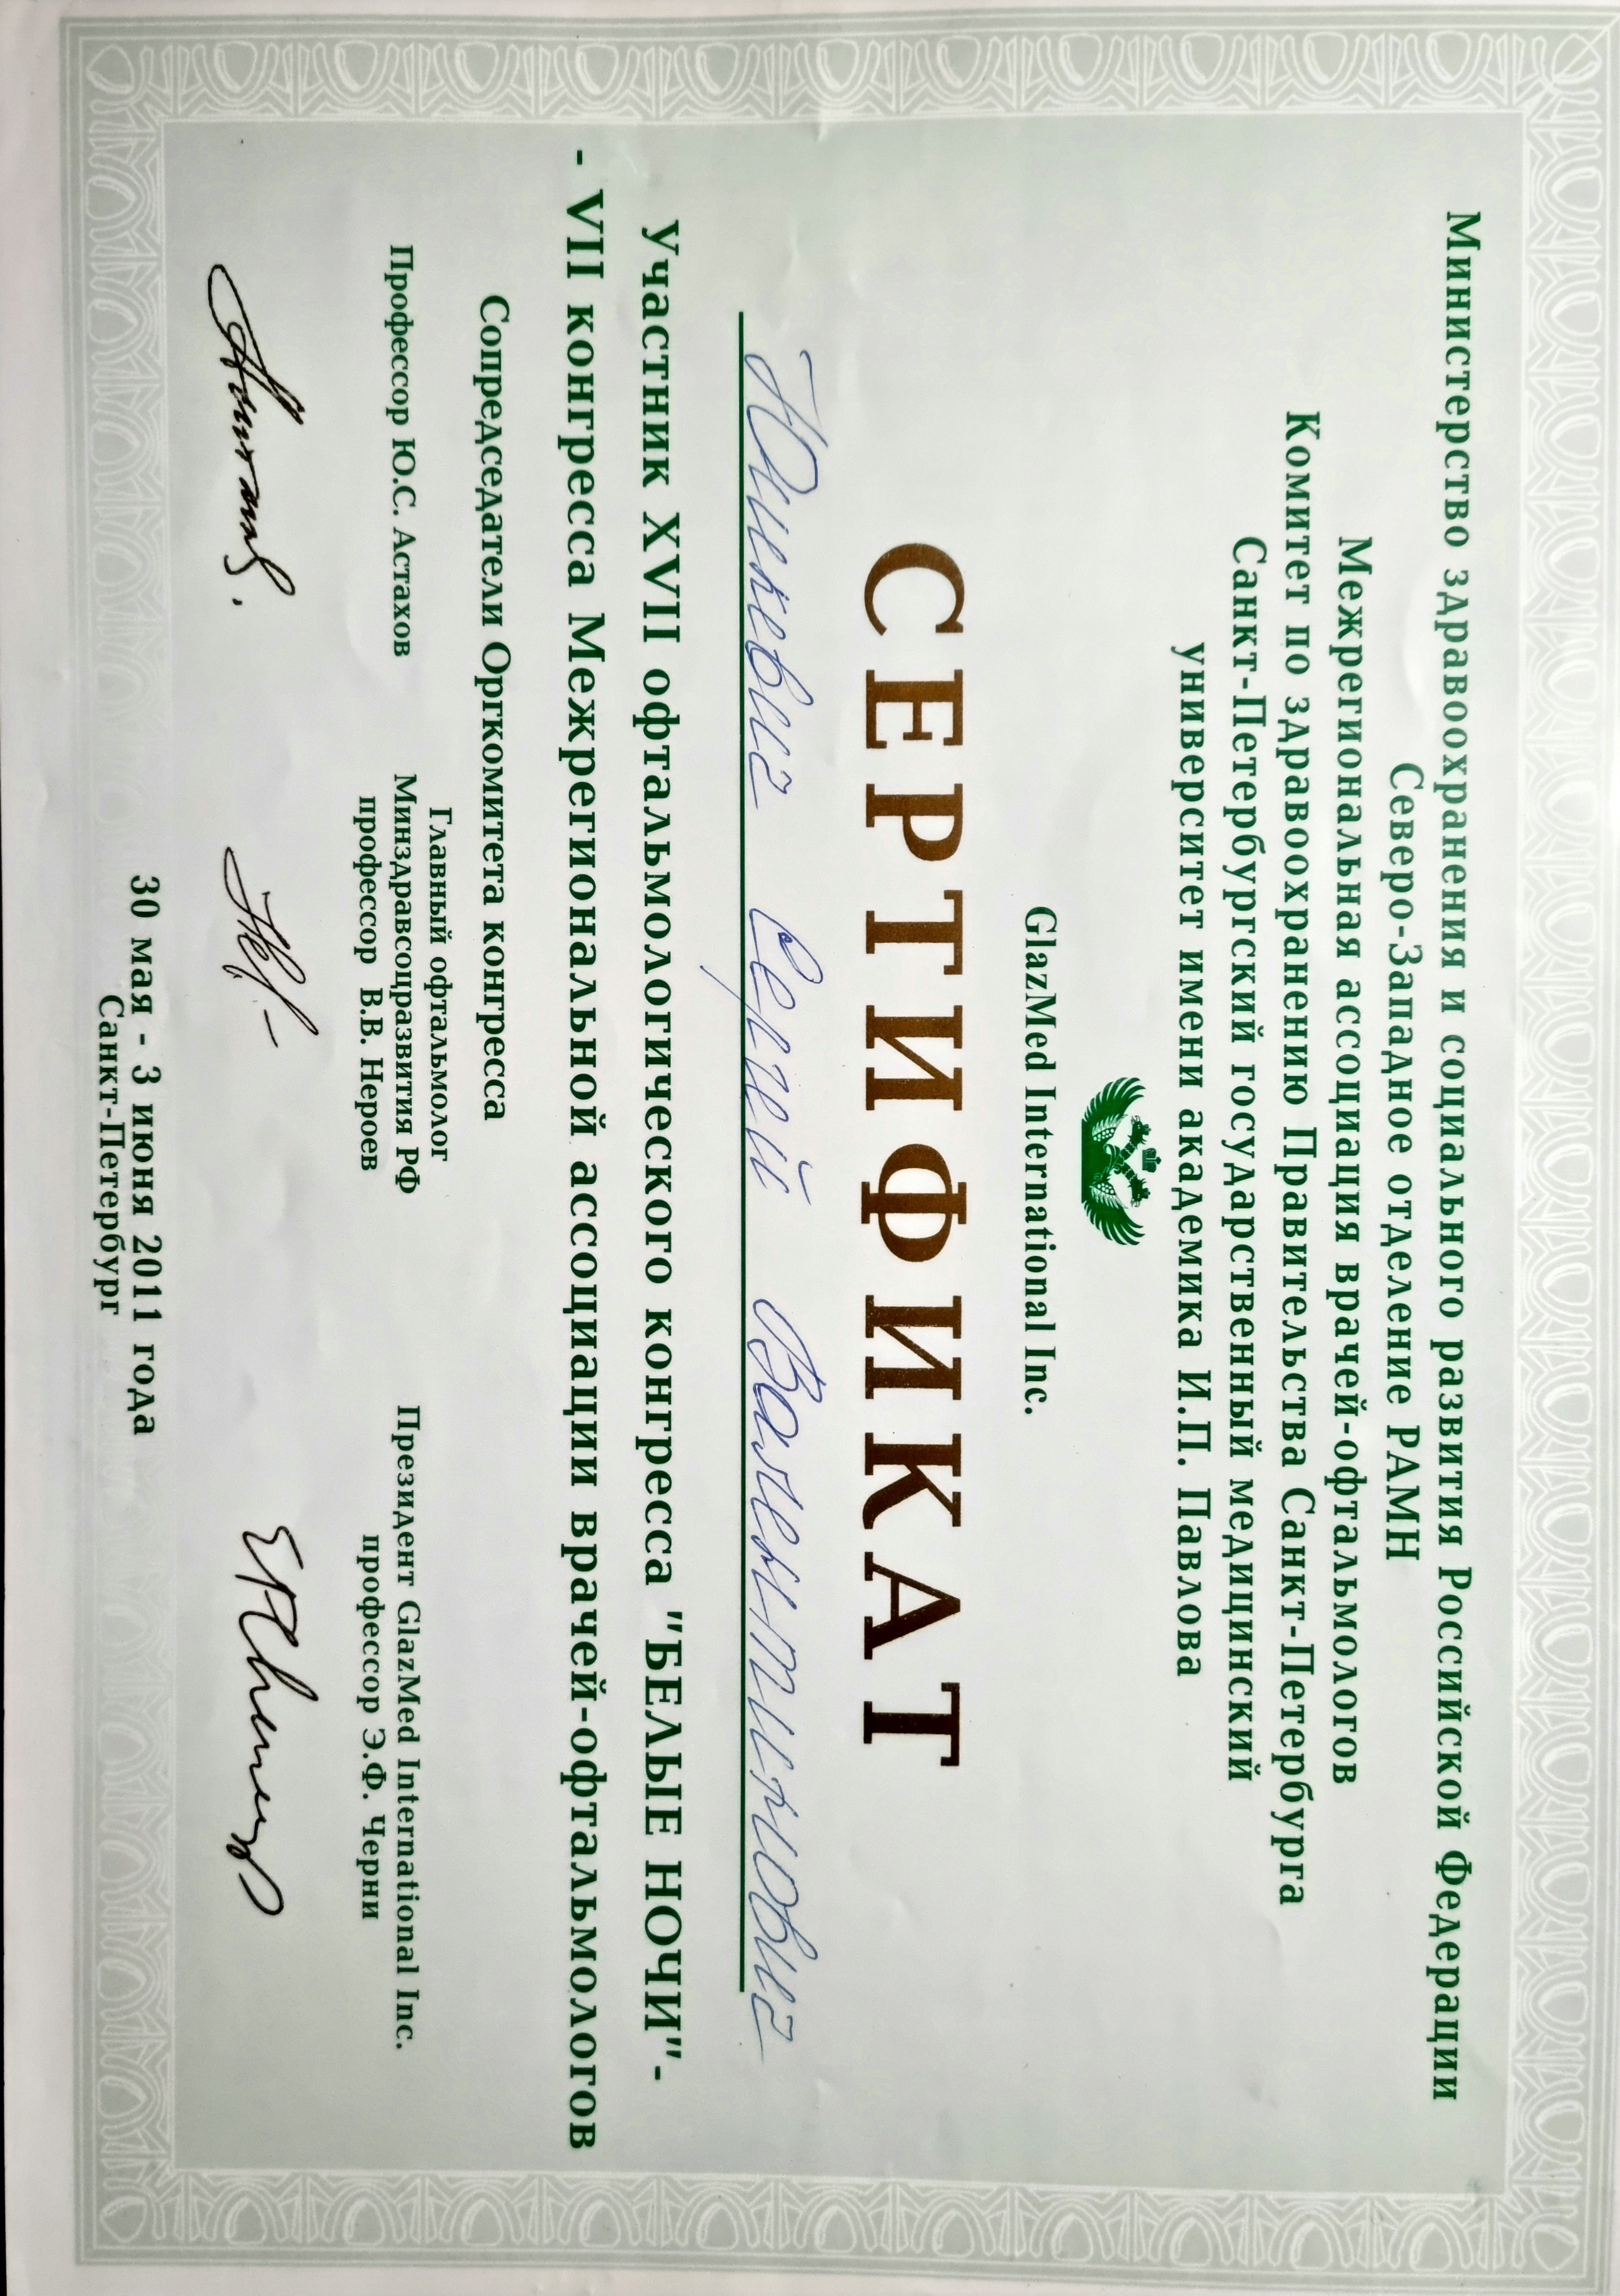 Министерство здравоохранения и социального развития Российской Федерации
Северо-Западное отделение РАМН
Межрегиональная ассоциация врачей-офтальмологов
Комитет по здравоохранению Правительства Санкт-Петербурга
Санкт-Петербургский государственный медицинский
университет имени академика И.П. Павлова
GlazMed International Inc.
СЕРТИФИКАТ
Юшкевич Сергей Валентинович
Участник XVII офтальмологического конгресса "БЕЛЫЕ НОЧИ"-
- VII конгресса Межрегиональной ассоциации врачей-офтальмологов
Сопредседатели Оргкомитета конгресса
Профессор Ю.С. Астахов
Главный офтальмолог
Минздравсоцразвития РФ
профессор В.В. Нероев
Президент GlazMed International Inc.
профессор Э.Ф. Черни
30 мая - 3 июня 2011 года
Санкт-Петербург